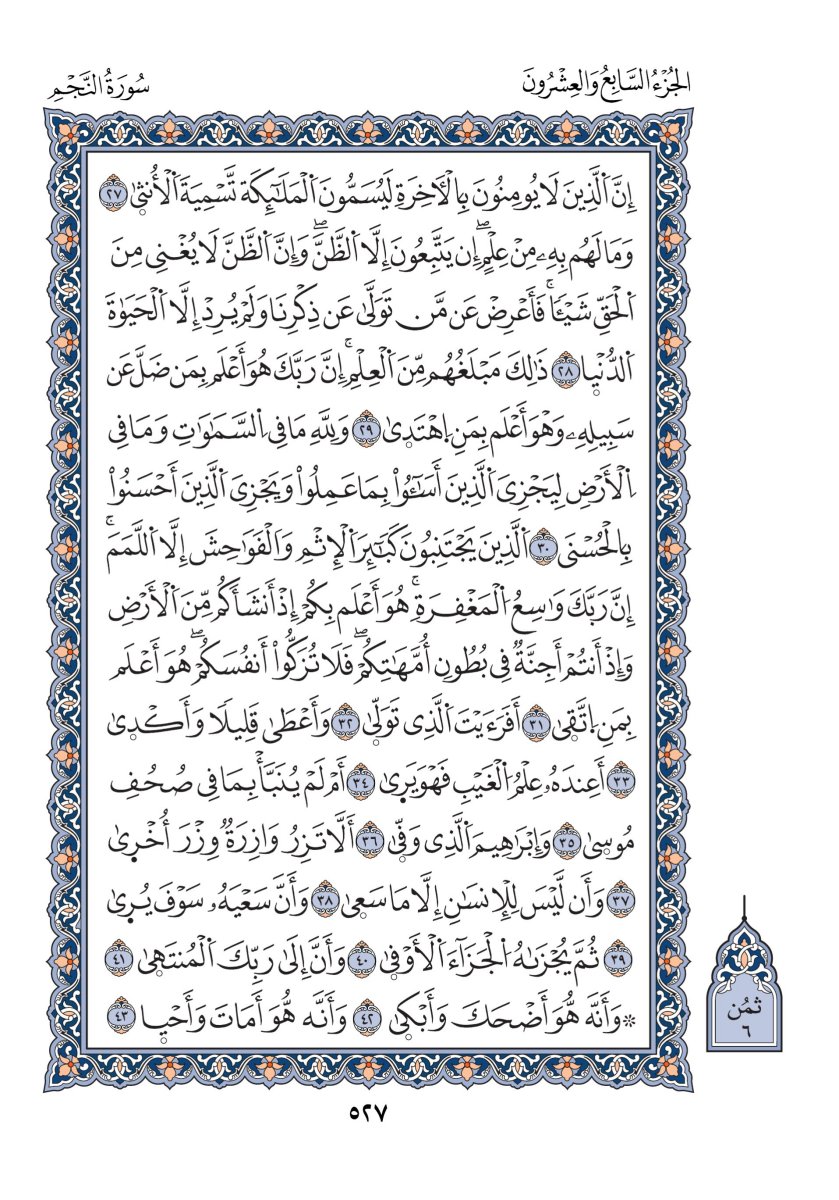 الجُزْءُ السَّابِعُ وَالعِشْرُونَ
سُورَةُ النَّجْمِ
إِنَّ اَ۬لذِينَ لَا يُومِنُونَ بِالْأٓخِرَةِ لَيُسَمُّونَ اَ۬لْمَلَٰٓئِكَة تَّسْمِيَةَ اَ۬لْأُنث۪يٰ ٢٧
وَمَا لَهُم بِهِۦ مِنْ عِلْمٍۖ إِن يَتَّبِعُونَ إِلَّا اَ۬لظَّنَّۖ وَإِنَّ اَ۬لظَّنَّ لَا يُغْنِي مِنَ
اَ۬لْحَقِّ شَيْـٔاٗۚ فَأَعْرِضْ عَن مَّن تَوَلَّىٰ عَن ذِكْرِنَا وَلَمْ يُرِدْ إِلَّا اَ۬لْحَيَوٰةَ
اَ۬لدُّنْي۪ا ٢٨ ذَٰلِكَ مَبْلَغُهُم مِّنَ اَ۬لْعِلْمِۚ إِنَّ رَبَّكَ هُوَ أَعْلَم بِمَن ضَلَّ عَن
سَبِيلِهِۦ وَهْوَ أَعْلَم بِمَنِ اِ۪هْتَد۪يٰ ٢٩ وَلِلهِ مَا فِي اِ۬لسَّمَٰوَٰتِ وَمَا فِي
اِ۬لْأَرْضِ لِيَجْزِيَ اَ۬لذِينَ أَسَٰٓـُٔواْ بِمَا عَمِلُواْ وَيَجْزِيَ اَ۬لذِينَ أَحْسَنُواْ
بِالْحُسْنَى ٣٠ اَ۬لذِينَ يَجْتَنِبُونَ كَبَٰٓئِرَ اَ۬لْإِثْمِ وَالْفَوَٰحِشَ إِلَّا اَ۬للَّمَمَۚ
إِنَّ رَبَّكَ وَٰسِعُ اُ۬لْمَغْفِرَةِۚ هُوَ أَعْلَم بِكُمْ إِذْ أَنشَأَكُم مِّنَ اَ۬لْأَرْضِ
وَإِذْ أَنتُمْ أَجِنَّةٞ فِي بُطُونِ أُمَّهَٰتِكُمْۖ فَلَا تُزَكُّواْ أَنفُسَكُمْۖ هُوَ أَعْلَم
بِمَنِ اِ۪تَّق۪يٰ ٣١ أَفَرَءَيْتَ اَ۬لذِي تَوَلّ۪يٰ ٣٢ وَأَعْطَىٰ قَلِيلاٗ وَأَكْد۪يٰ
٣٣ أَعِندَهُۥ عِلْمُ اُ۬لْغَيْبِ فَهْوَ يَر۪يٰ ٣٤ أَمْ لَمْ يُنَبَّأْ بِمَا فِي صُحُفِ
مُوس۪يٰ ٣٥ وَإِبْرَٰهِيمَ اَ۬لذِي وَفّ۪يٰ ٣٦ أَلَّا تَزِرُ وَازِرَةٞ وِزْرَ أُخْر۪يٰ
٣٧ وَأَن لَّيْسَ لِلْإِنسَٰنِ إِلَّا مَا سَع۪يٰ ٣٨ وَأَنَّ سَعْيَهُۥ سَوْفَ يُر۪يٰ
٣٩ ثُمَّ يُجْزَىٰهُ اُ۬لْجَزَآءَ اَ۬لْأَوْف۪يٰ ٤٠ وَأَنَّ إِلَىٰ رَبِّكَ اَ۬لْمُنتَه۪يٰ ٤١
۞وَأَنَّه هُّوَ أَضْحَكَ وَأَبْك۪يٰ ٤٢ وَأَنَّه هُّوَ أَمَاتَ وَأَحْي۪ا ٤٣
ثُمُن
٦
٥٢٧